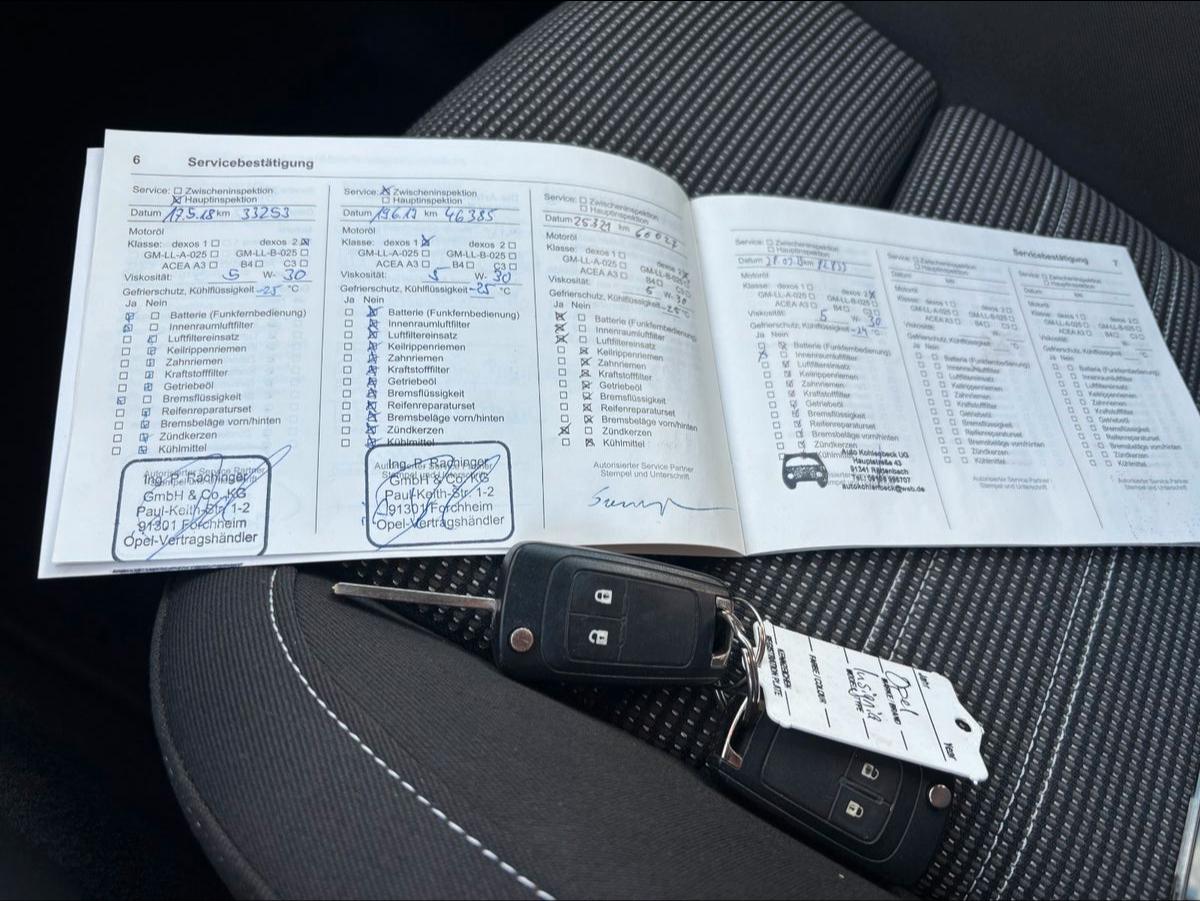 6 Servicebestätigung
Service: Zwischeninspektion
Hauptinspektion
Datum 17.5.18 km 33253
Motoröl
Klasse: dexos 1 dexos 2
GM-LL-A-025 GM-LL-B-025
ACEA A3 B4 C3
Viskosität: 5 W- 30
Gefrierschutz, Kühlflüssigkeit -25 °C
Ja Nein
Batterie (Funkfernbedienung)
Innenraumluftfilter
Luftfiltereinsatz
Keilrippenriemen
Zahnriemen
Kraftstofffilter
Getriebeöl
Bremsflüssigkeit
Reifenreparaturset
Bremsbeläge vorn/hinten
Zündkerzen
Kühlmittel
Autorisierter Service Partner
Ing. P. Rachinger
GmbH & Co. KG
Paul-Keith-Str. 1-2
91301 Forchheim
Opel-Vertragshändler
Service: Zwischeninspektion
Hauptinspektion
Datum km 46385
Motoröl
Klasse: dexos 1 dexos 2
GM-LL-A-025 GM-LL-B-025
ACEA A3 B4 C3
Viskosität: 5 W- 30
Gefrierschutz, Kühlflüssigkeit -25 °C
Ja Nein
Batterie (Funkfernbedienung)
Innenraumluftfilter
Luftfiltereinsatz
Keilrippenriemen
Zahnriemen
Kraftstofffilter
Getriebeöl
Bremsflüssigkeit
Reifenreparaturset
Bremsbeläge vorn/hinten
Zündkerzen
Kühlmittel
Ing. P. Rachinger
GmbH & Co. KG
Paul-Keith-Str. 1-2
91301 Forchheim
Opel-Vertragshändler
Service: Zwischeninspektion
Hauptinspektion
Datum km
Motoröl
Klasse: dexos 1 dexos 2
GM-LL-A-025 GM-LL-B-025
ACEA A3 B4 C3
Viskosität: 5 W- 30
Gefrierschutz, Kühlflüssigkeit -25 °C
Ja Nein
Batterie (Funkfernbedienung)
Innenraumluftfilter
Luftfiltereinsatz
Keilrippenriemen
Zahnriemen
Kraftstofffilter
Getriebeöl
Bremsflüssigkeit
Reifenreparaturset
Bremsbeläge vorn/hinten
Zündkerzen
Kühlmittel
Autorisierter Service Partner
Stempel und Unterschrift
Servicebestätigung 7
Service: Zwischeninspektion
Hauptinspektion
Datum km
Motoröl
Klasse: dexos 1 dexos 2
GM-LL-A-025 GM-LL-B-025
ACEA A3 B4 C3
Viskosität: 5 W 30
Gefrierschutz, Kühlflüssigkeit °C
Ja Nein
Batterie (Funkfernbedienung)
Innenraumluftfilter
Luftfiltereinsatz
Keilrippenriemen
Zahnriemen
Kraftstofffilter
Getriebeöl
Bremsflüssigkeit
Reifenreparaturset
Bremsbeläge vorn/hinten
Zündkerzen
Kühlmittel
Auto Kohlegbeck UG
Hauptstraße 43
autokohlenbeck@web.de
Service: Zwischeninspektion
Hauptinspektion
Datum km
Motoröl
Klasse: dexos 1 dexos 2
GM-LL-A-025 GM-LL-B-025
ACEA A3 B4 C3
Viskosität: W-
Gefrierschutz, Kühlflüssigkeit °C
Ja Nein
Batterie (Funkfernbedienung)
Innenraumluftfilter
Luftfiltereinsatz
Keilrippenriemen
Zahnriemen
Kraftstofffilter
Getriebeöl
Bremsflüssigkeit
Reifenreparaturset
Bremsbeläge vorn/hinten
Zündkerzen
Kühlmittel
Autorisierter Service Partner
Stempel und Unterschrift
Service: Zwischeninspektion
Hauptinspektion
Datum km
Motoröl
Klasse: dexos 1 dexos 2
GM-LL-A-025 GM-LL-B-025
ACEA A3 B4 C3
Viskosität: W-
Gefrierschutz, Kühlflüssigkeit °C
Ja Nein
Batterie (Funkfernbedienung)
Innenraumluftfilter
Luftfiltereinsatz
Keilrippenriemen
Zahnriemen
Kraftstofffilter
Getriebeöl
Bremsflüssigkeit
Reifenreparaturset
Bremsbeläge vorn/hinten
Zündkerzen
Kühlmittel
Autorisierter Service Partner
Stempel und Unterschrift
Jahr Year
Opel
Insignia
FARBE / COLOUR
KENNZEICHEN
REGISTRATION PLATE